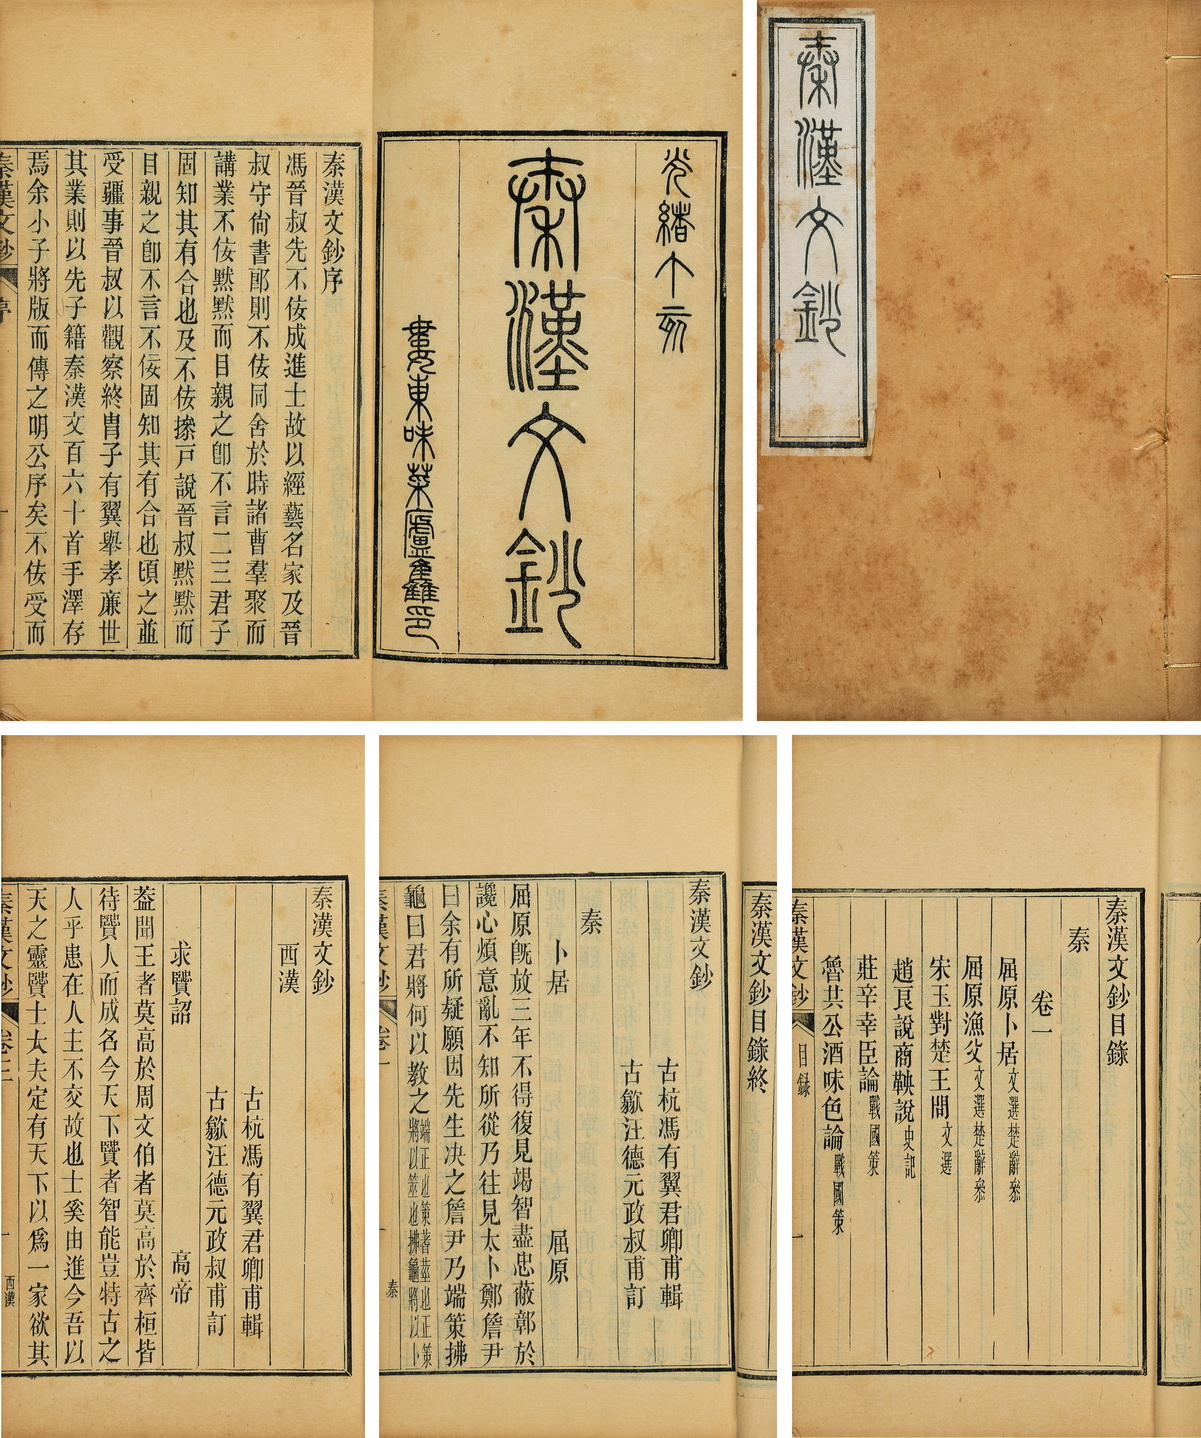 秦漢文鈔
光緒丁亥
秦漢文鈔
婁東味菜廬雋印
秦漢文鈔序
馮晉叔先不佞成進士故以經藝名家及晉
叔守尙書郎則不佞同舍於時諸曹羣聚而
講業不佞默默而目親之卽不言二三君子
固知其有合也及不佞摻戸說晉叔默默而
目親之卽不言不佞固知其有合也頃之並
受疆事晉叔以觀察終冑子有翼舉孝廉世
其業則以先子籍秦漢文百六十首手澤存
焉余小子將版而傳之明公序矣不佞受而
秦漢文鈔 序 一
秦漢文鈔目錄
卷一
秦
屈原卜居文選楚辭叅
屈原漁父文選楚辭叅
宋玉對楚王問文選
趙良說商鞅說史記
莊辛幸臣論戰國策
魯共公酒味色論戰國策
秦漢文鈔 目録 一
秦漢文鈔目錄終
秦漢文鈔
古杭馮有翼君卿甫輯
古歙汪德元政叔甫訂
秦
卜居 屈原
屈原旣放三年不得復見竭智盡忠蔽鄣於
讒心煩意亂不知所從乃往見太卜鄭詹尹
曰余有所疑願因先生决之詹尹乃端策拂
龜曰君將何以教之端正也策蓍莖也正策
將以筮也拂龜將以卜
秦漢文鈔 卷一 一 秦
秦漢文鈔
西漢
古杭馮有翼君卿甫輯
古歙汪德元政叔甫訂
求賢詔 高帝
葢聞王者莫高於周文伯者莫高於齊桓皆
待賢人而成名今天下賢者智能豈特古之
人乎患在人主不交故也士奚由進今吾以
天之靈賢士大夫定有天下以爲一家欲其
秦漢文鈔 卷二 一 西漢